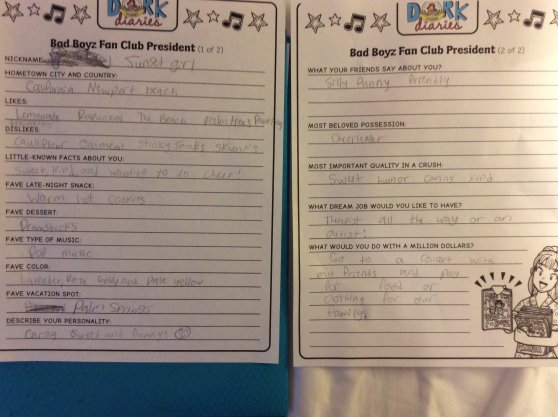 DORK
diaries
Bad Boyz Fan Club President (1 of 2)
NICKNAME: Sunset girl
HOMETOWN CITY AND COUNTRY:
California Newport beach
LIKES:
Lemonade The Beach palm trees
DISLIKES:
Cauliflour Oatmeal Stinky smells skunk's
LITTLE-KNOWN FACTS ABOUT YOU:
Sweet, kind, and wanting to do cheer!
FAVE LATE-NIGHT SNACK:
Warm hot cookies
FAVE DESSERT:
Drumsticks
FAVE TYPE OF MUSIC:
Pop music
FAVE COLOR:
Lavender, rose gold, and pale yellow
FAVE VACATION SPOT:
Palm Springs
DESCRIBE YOUR PERSONALITY:
Caring sweet and funny!
DORK
diaries
Bad Boyz Fan Club President (2 of 2)
WHAT YOUR FRIENDS SAY ABOUT YOU?
Silly Funny friendly
MOST BELOVED POSSESSION:
Cheerleader
MOST IMPORTANT QUALITY IN A CRUSH:
Sweet humor caring kind
WHAT DREAM JOB WOULD YOU LIKE TO HAVE?
Therpist all the way or an
artest!
WHAT WOULD YOU DO WITH A MILLION DOLLARS?
Go to a consert with
my friends and pay
for food or
clothing for our
family.